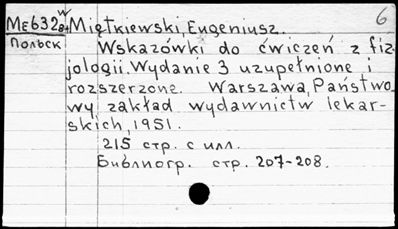 W 6
МЕ632в+ Miętkiewski, Eugeniusz.
Польск Wskazówki do ćwiczeń z fiz-
jologii. Wydanie 3 uzupełnione i
rozszerzone. Warszawa, Państwo-
wy zakład wydawnictw lekar-
skich, 1951.
215 стр. с илл.
Библиогр. стр. 207-208.